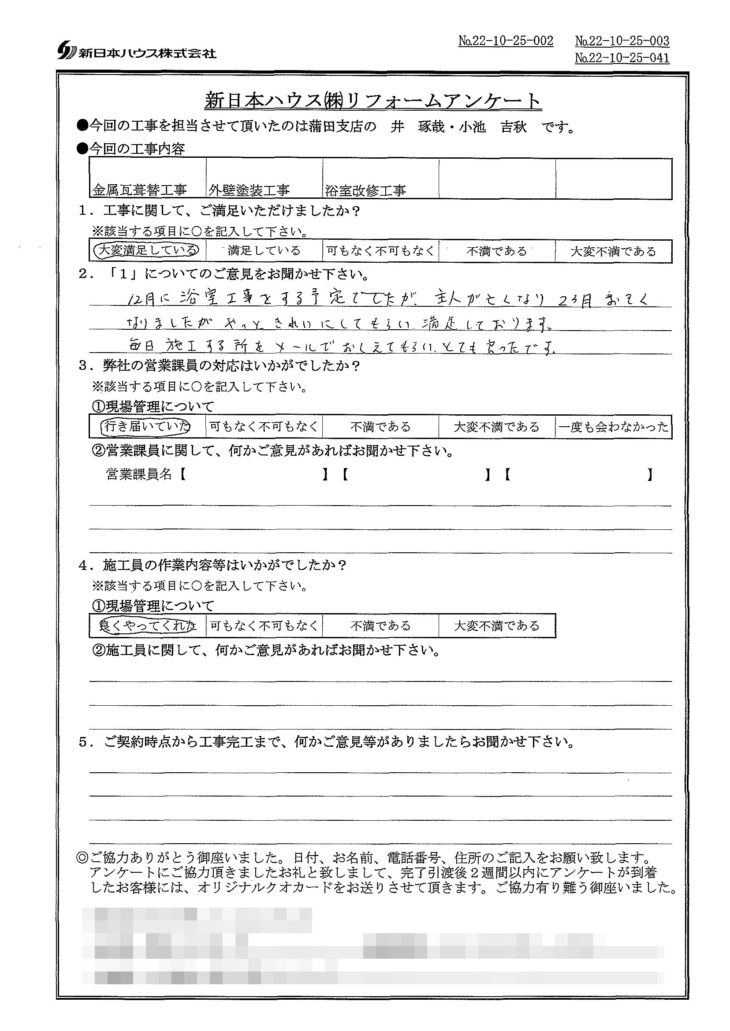 新日本ハウス株式会社
№22-10-25-002 №22-10-25-003
№22-10-25-041
新日本ハウス㈱リフォームアンケート
●今回の工事を担当させて頂いたのは蒲田支店の 井 琢哉・小池 吉秋 です。
●今回の工事内容
金属瓦葺替工事 外壁塗装工事 浴室改修工事
1．工事に関して、ご満足いただけましたか？
※該当する項目に○を記入して下さい。
大変満足している 満足している 可もなく不可もなく 不満である 大変不満である
2．「1」についてのご意見をお聞かせ下さい。
12月に浴室工事をする予定でしたが、主人が亡くなり2ヶ月おそく
なりましたがやっときれいにしてもらい満足しております。
毎日施工する所をメールでおしえてもらい、とても良ったです。
3．弊社の営業課員の対応はいかがでしたか？
※該当する項目に○を記入して下さい。
①現場管理について
行き届いていた 可もなく不可もなく 不満である 大変不満である 一度も会わなかった
②営業課員に関して、何かご意見があればお聞かせ下さい。
営業課員名【 】【 】【 】
4．施工員の作業内容等はいかがでしたか？
※該当する項目に○を記入して下さい。
①現場管理について
良くやってくれた 可もなく不可もなく 不満である 大変不満である
②施工員に関して、何かご意見があればお聞かせ下さい。
5．ご契約時点から工事完工まで、何かご意見等がありましたらお聞かせ下さい。
◎ご協力ありがとう御座いました。日付、お名前、電話番号、住所のご記入をお願い致します。
アンケートにご協力頂きましたお礼と致しまして、完了引渡後２週間以内にアンケートが到着
したお客様には、オリジナルクオカードをお送りさせて頂きます。ご協力有り難う御座いました。